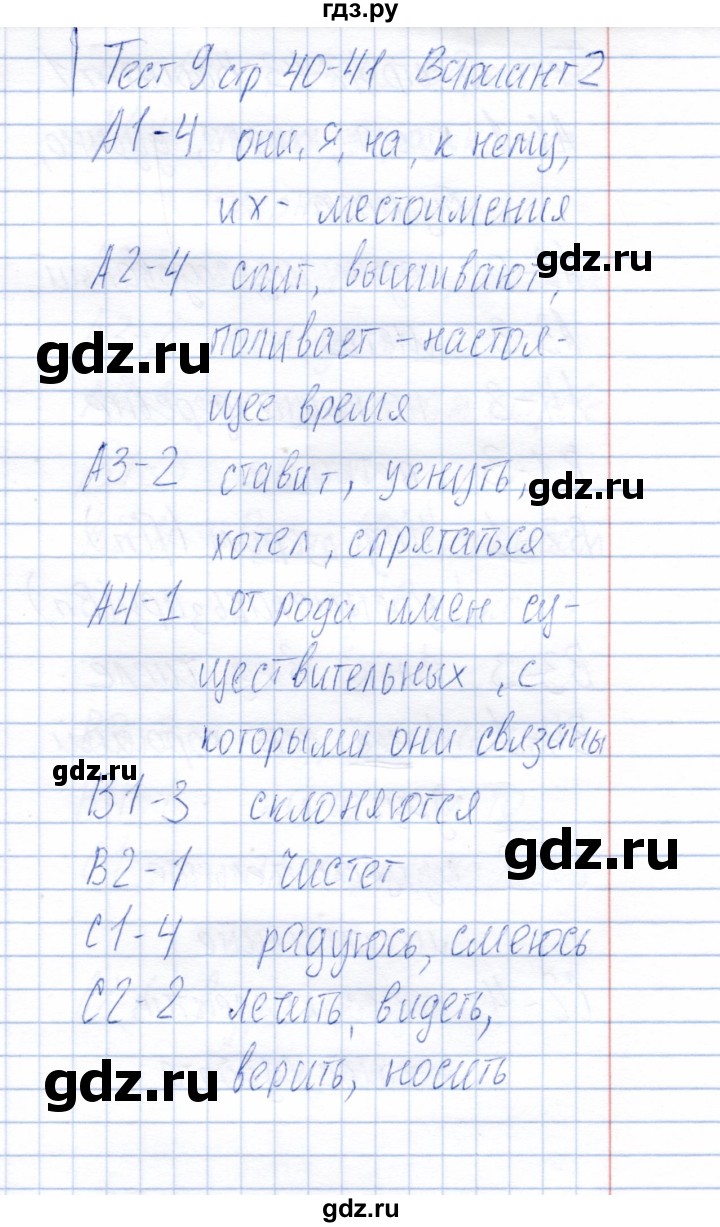 гдз.ру
Тест 9 стр 40-41 Вариант 2
А1-4 они, я, на, к нему,
их - местоимения
А2-4 спит, вышивают,
gdz.ru
поливает - настоя-
gdz.ru
щее время
А3-2 ставит, уснуть,
gdz.ru
хотел, спрятаться
А4-1 от рода имен су-
ществительных, с
которыми они связаны
gdz.ru
В1-3 склоняются
gdz.ru
В2-1 чистет
С1-4 радуюсь, смеюсь
С2-2 лечить, видеть,
gdz.ru
верить, носить
gdz.ru